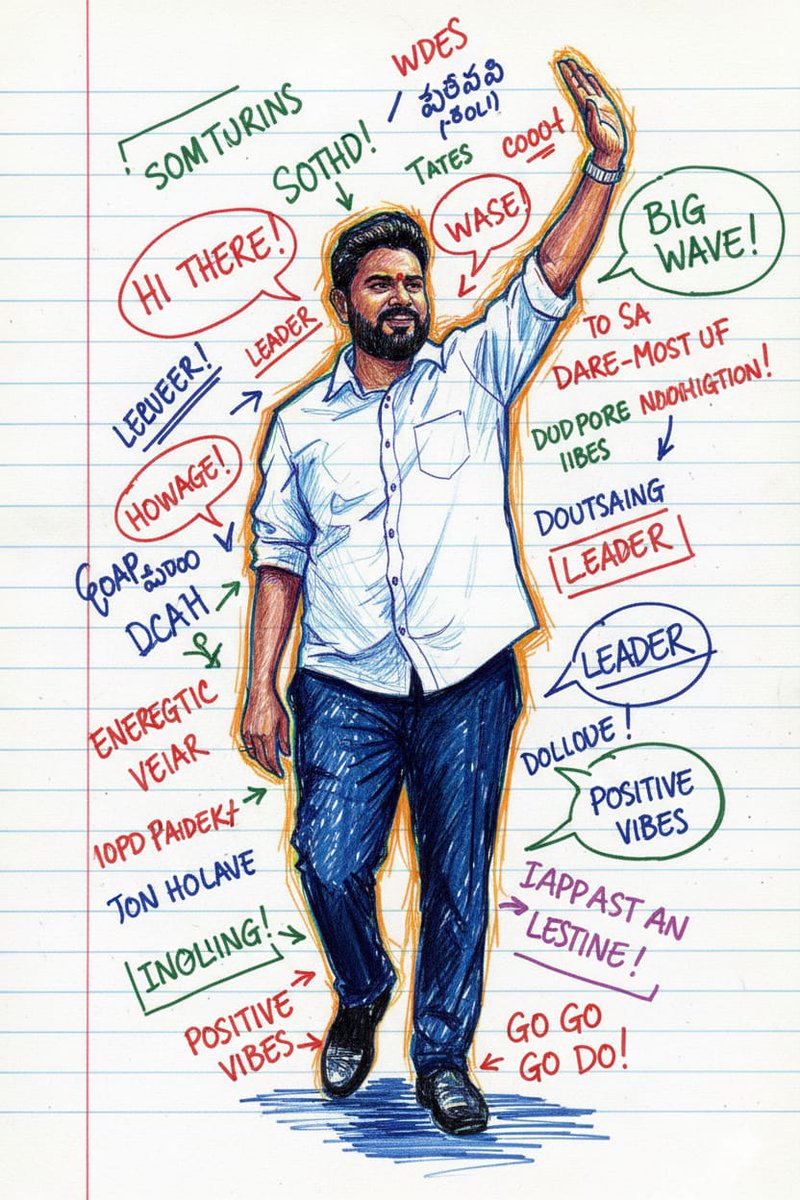 WDES
పెరీవవి
(-కOLI)
SOMTURINS
SOTHD!
TATES
COOOt
WASE!
BIG
WAVE!
HI THERE!
LEADER
LEEVEER!
TO SA
DARE-MOST UF
NOOHIGTION!
DUDPORE
IIBES
HOWAGE!
DOUTSAING
LEADER
DCAH
LEADER
ENEREGTIC
VEIAR
DOLLOUE!
POSITIVE
VIBES
10PD PAIDEKt
JON HOLAVE
IAPPAST AN
LESTINE!
INOLIING!
POSITIVE
VIBES
GO GO
GO DO!